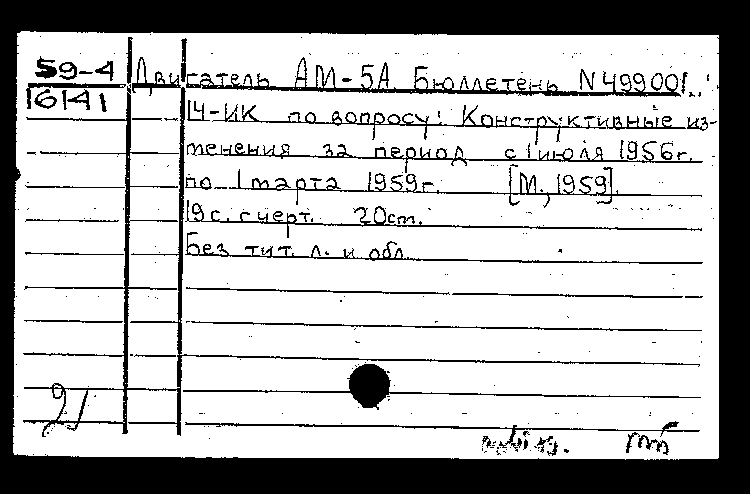 59-4 Двигатель АМ-5А Бюллетень N499001..
16141
14-ИК по вопросу: Конструктивные из-
менения за период с 1 июля 1956г.
по 1 марта 1959г. [М., 1959].
19с. с черт. 20см.
Без тит. л. и обл.
21